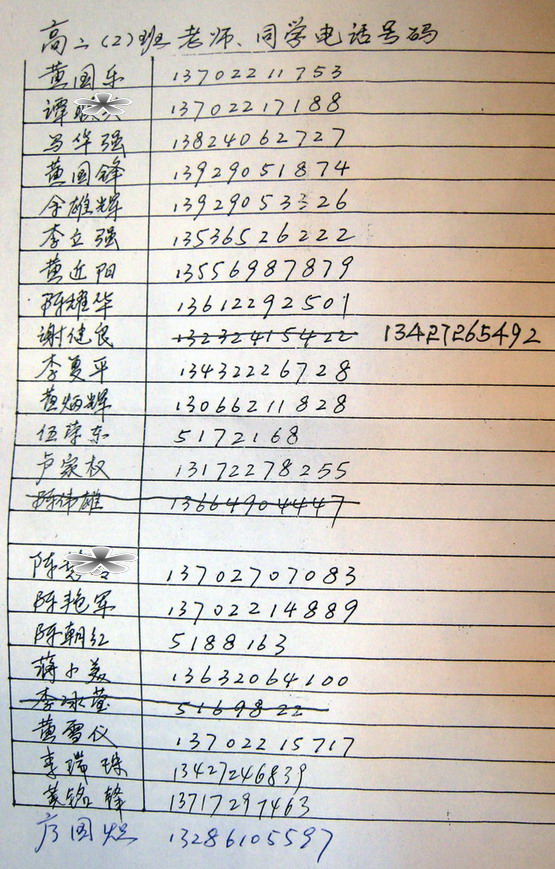 高二(2)班老师、同学电话号码
黄国乐 13702211753
谭 13702217188
马华强 13824062727
黄国锋 13929051874
余雄辉 13929053326
李立强 13536526222
黄近阳 13556987879
陈耀华 13612292501
谢健良 13232415422 13427265492
李夏平 13432226728
黄炳辉 13066211828
伍荣东 5172168
卢家权 13172278255
陈伟雄 13664904447
陈 13702707083
陈艳军 13702214889
陈朝红 5188163
蒋小美 13632064100
李冰莹 5169822
黄雪仪 13702215717
李瑞珠 13427246839
黄铭锋 13717297463
国 13286105597